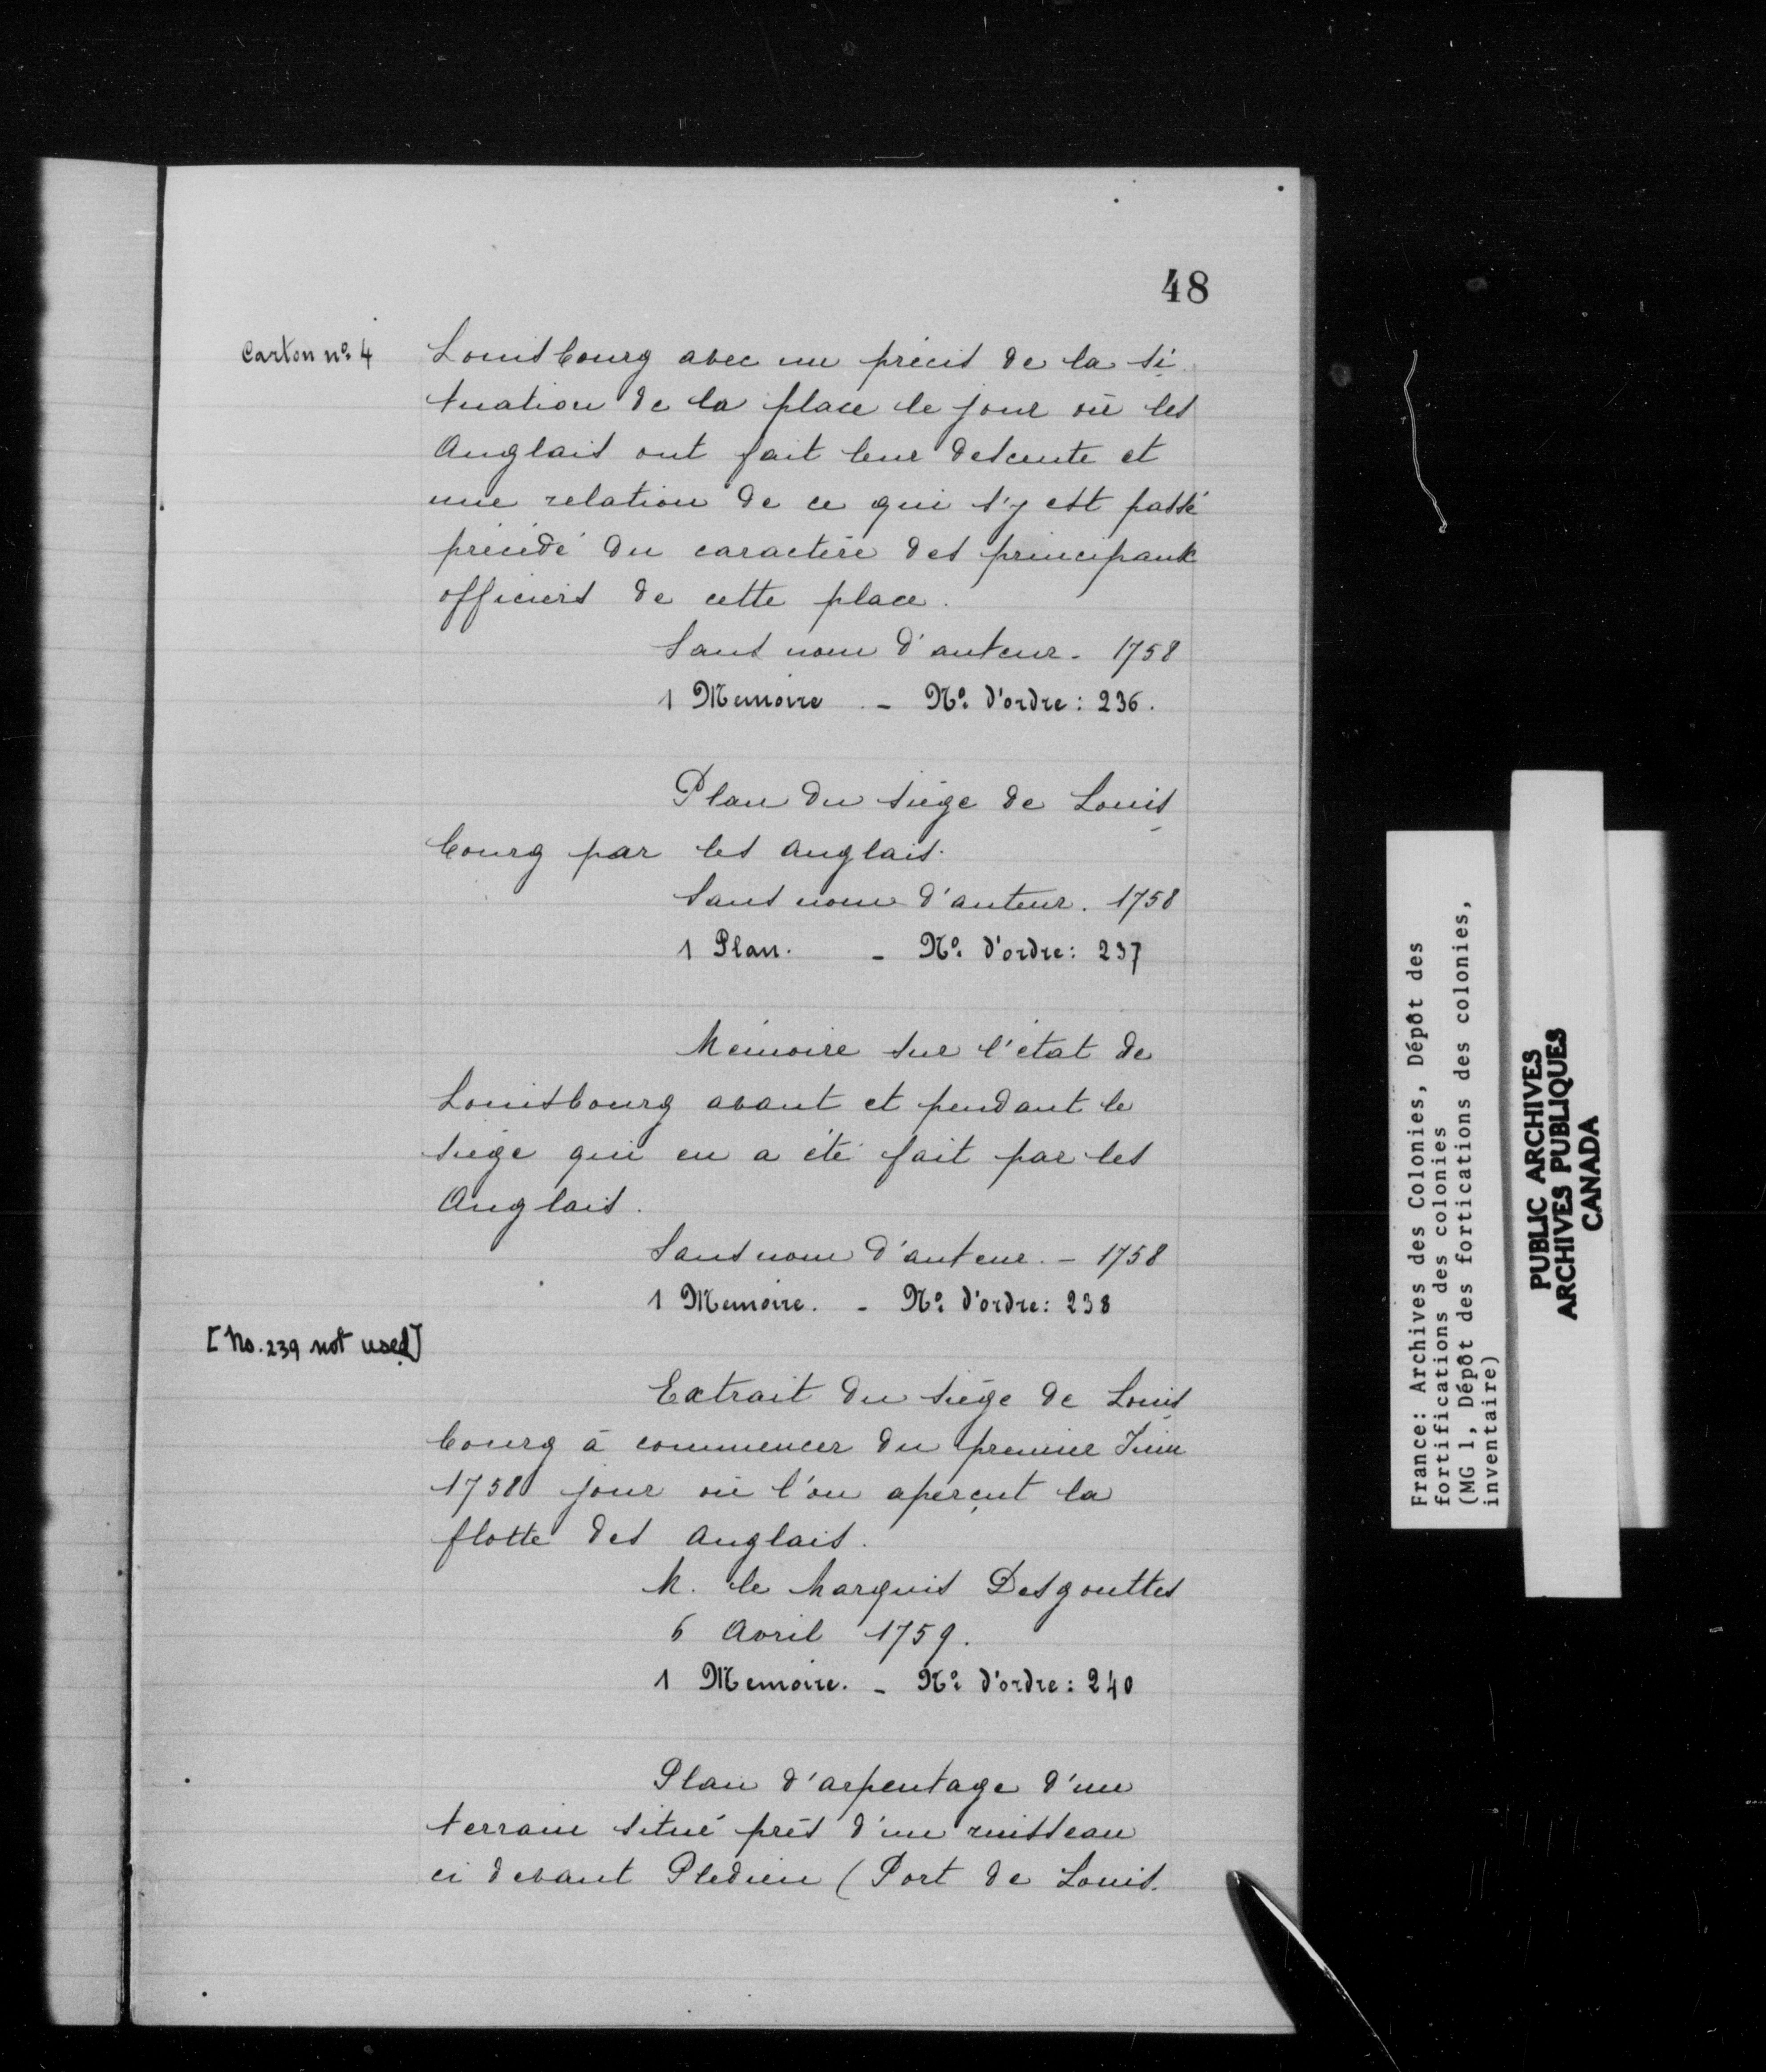 48
Carton nº 4
Louisbourg avec un précis de la si
tuation de la place le jour où les
Anglais ont fait leur descente et
une relation de ce qui s'y est passé
précédé du caractère des principaux
officiers de cette place.
Sans nom d'auteur - 1758
1 Memoire - Nº d'ordre : 236.
Plan du siège de Louis
bourg par les Anglais.
Sans nom d'auteur. 1758
1 Plan. - Nº d'ordre : 237
Mémoire sur l'état de
Louisbourg avant et pendant le
siège qui en a été fait par les
Anglais.
Sans nom d'auteur. - 1758
1 Memoire. - Nº d'ordre : 238
[No. 239 not used]
Extrait du siège de Louis
bourg à commencer du premier Juin
1758 jour où l'on aperçut la
flotte des Anglais.
M. le Marquis Desgouttes
6 Avril 1759.
1 Memoire. - Nº d'ordre : 240
Plan d'arpentage d'un
terrain situé près d'un ruisseau
ci devant Pledieu (Port de Louis.
France: Archives des Colonies, Dépôt des
fortifications des colonies
(MG 1, Dépôt des fortications des colonies,
inventaire)
PUBLIC ARCHIVES
ARCHIVES PUBLIQUES
CANADA